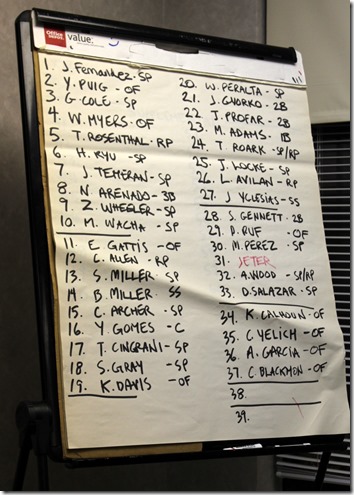 Office DEPOT value:
1. J. Fernandez - SP
2. Y. PUIG - OF
3. G. COLE - SP
4. W. MYERS - OF
5. T. ROSENTHAL - RP
6. H. RYU - SP
7. J. TEHERAN - SP
8. N. ARENADO - 3B
9. Z. WHEELER - SP
10. M. WACHA - SP
11. E GATTIS - OF
12. C. ALLEN - RP
13. S. MILLER - SP
14. B. MILLER - SS
15. C. ARCHER - SP
16. Y. GOMES - C
17. T. CINGRANI - SP
18. S. GRAY - SP
19. K. DAVIS - OF
20. W. PERALTA - SP
21. J. GYORKO - 2B
22. J. PROFAR - 2B
23. M. ADAMS - 1B
24. T. ROARK - SP/RP
25. J. LOCKE - SP
26. L. AVILAN - RP
27. J YGLESIAS - SS
28. S. GENNETT - 2B
29. D. RUF - OF
30. M. PEREZ - SP
31. JETER
32. A. WOOD - SP/RP
33. D. SALAZAR - SP
34. K. CALHOUN - OF
35. C. YELICH - OF
36. A. GARCIA - OF
37. C. BLACKMON - OF
38.
39.